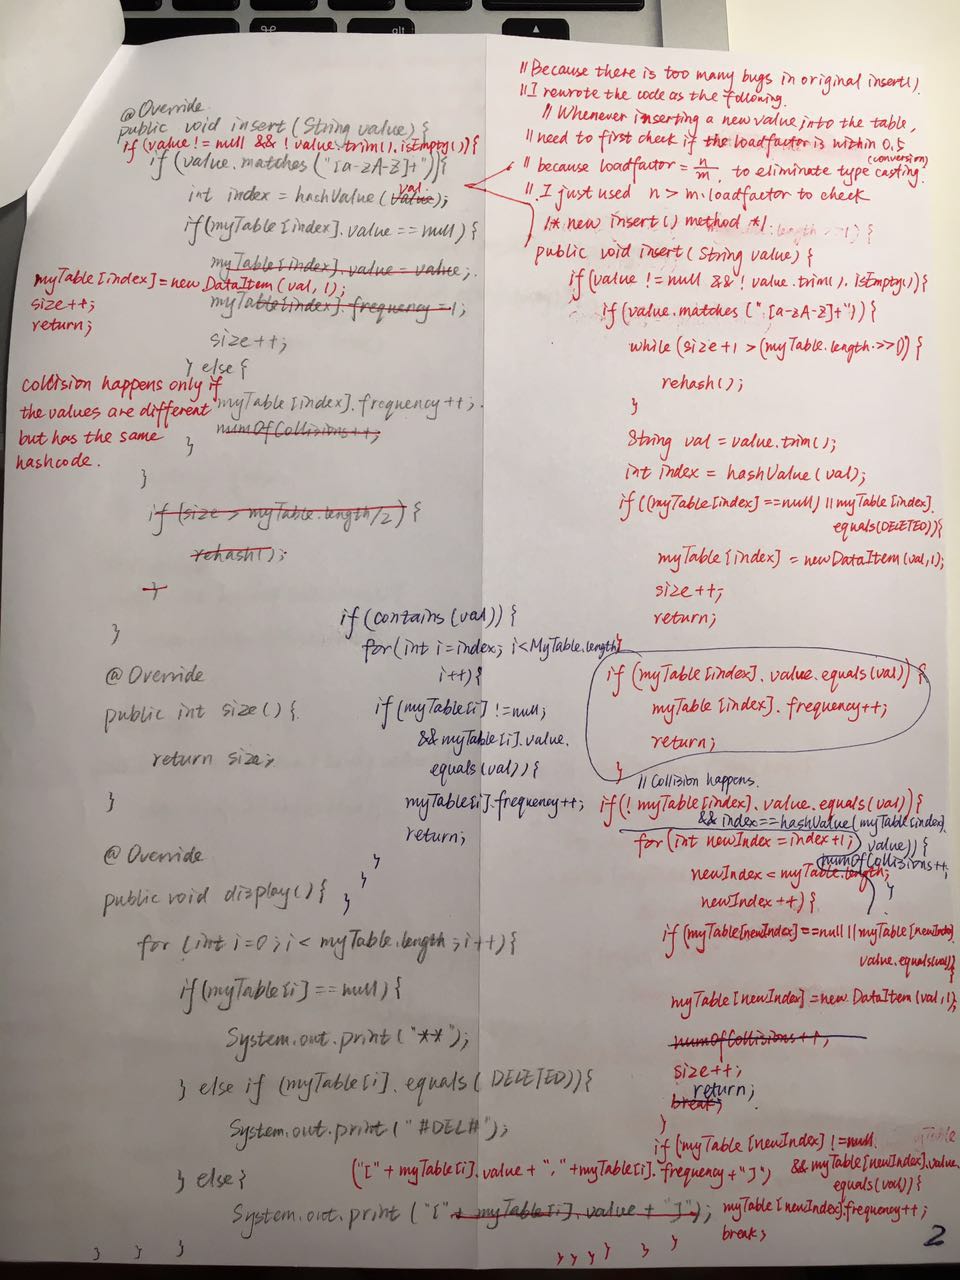 alt
@Override
public void insert(String value){
if(value != null && !value.trim().isEmpty()){
if (value.matches("[a-zA-Z]+")){
val
int index = hashValue(value);
if(myTable[index].value == null){
myTable[index].value = value;
myTable[index]=new DataItem(val,1);
myTable[index].frequency = 1;
size++;
return;
size++;
} else {
collision happens only if
the values are different
but has the same
hashcode.
myTable[index].frequency++;
numOfCollisions++;
}
}
if (size > myTable.length/2){
rehash();
}
}
@Override
public int size(){
return size;
}
@Override
public void display(){
for (int i=0; i< myTable.length; i++){
if(myTable[i]==null){
System.out.print("**");
} else if (myTable[i].equals(DELETED)){
System.out.print("#DEL#");
} else {
("[" + myTable[i].value + "," +myTable[i].frequency+"]")
System.out.print("["+ myTable[i].value + "]");
} } }
if(contains(val)){
for(int i=index; i<MyTable.length
i++){
if(myTable[i] !=null;
&&myTable[i].value.
equals(val)){
myTable[i].frequency++;
return;
}
}
}
// Because there is too many bugs in original insert().
// I rewrote the code as the following.
// Whenever inserting a new value into the table,
// need to first check if the loadfactor is within 0.5
(conversion)
// because loadfactor = n/m, to eliminate type casting.
// I just used n > m·loadfactor to check
/* new insert() method */
public void insert(String value){
if(value != null && !value.trim().isEmpty()){
if(value.matches("[a-zA-Z]+")){
while(size+1 >(myTable.length>>>1)){
rehash();
}
String val = value.trim();
int index = hashValue(val);
if((myTable[index]==null) || myTable[index].
equals(DELETED)){
myTable[index] = new DataItem(val,1);
size++;
return;
}
if (myTable[index].value.equals(val)){
myTable[index].frequency++;
return;
}
// Collision happens.
if(!myTable[index].value.equals(val)){
&& index==hashValue(myTable[index].
value)){
for(int newIndex = index+1;
numOfCollisions++;
newIndex < myTable.length;
}
newIndex++){
if(myTable[newIndex]==null||myTable[newIndex]
value.equals(val)
{
myTable[newIndex]=new DataItem(val,1);
numOfCollisions++;
size++;
return;
break;
}
if(myTable[newIndex] !=null
&&myTable[newIndex].value.
equals(val)){
myTable[newIndex].frequency++;
break;
} } } } } }
2